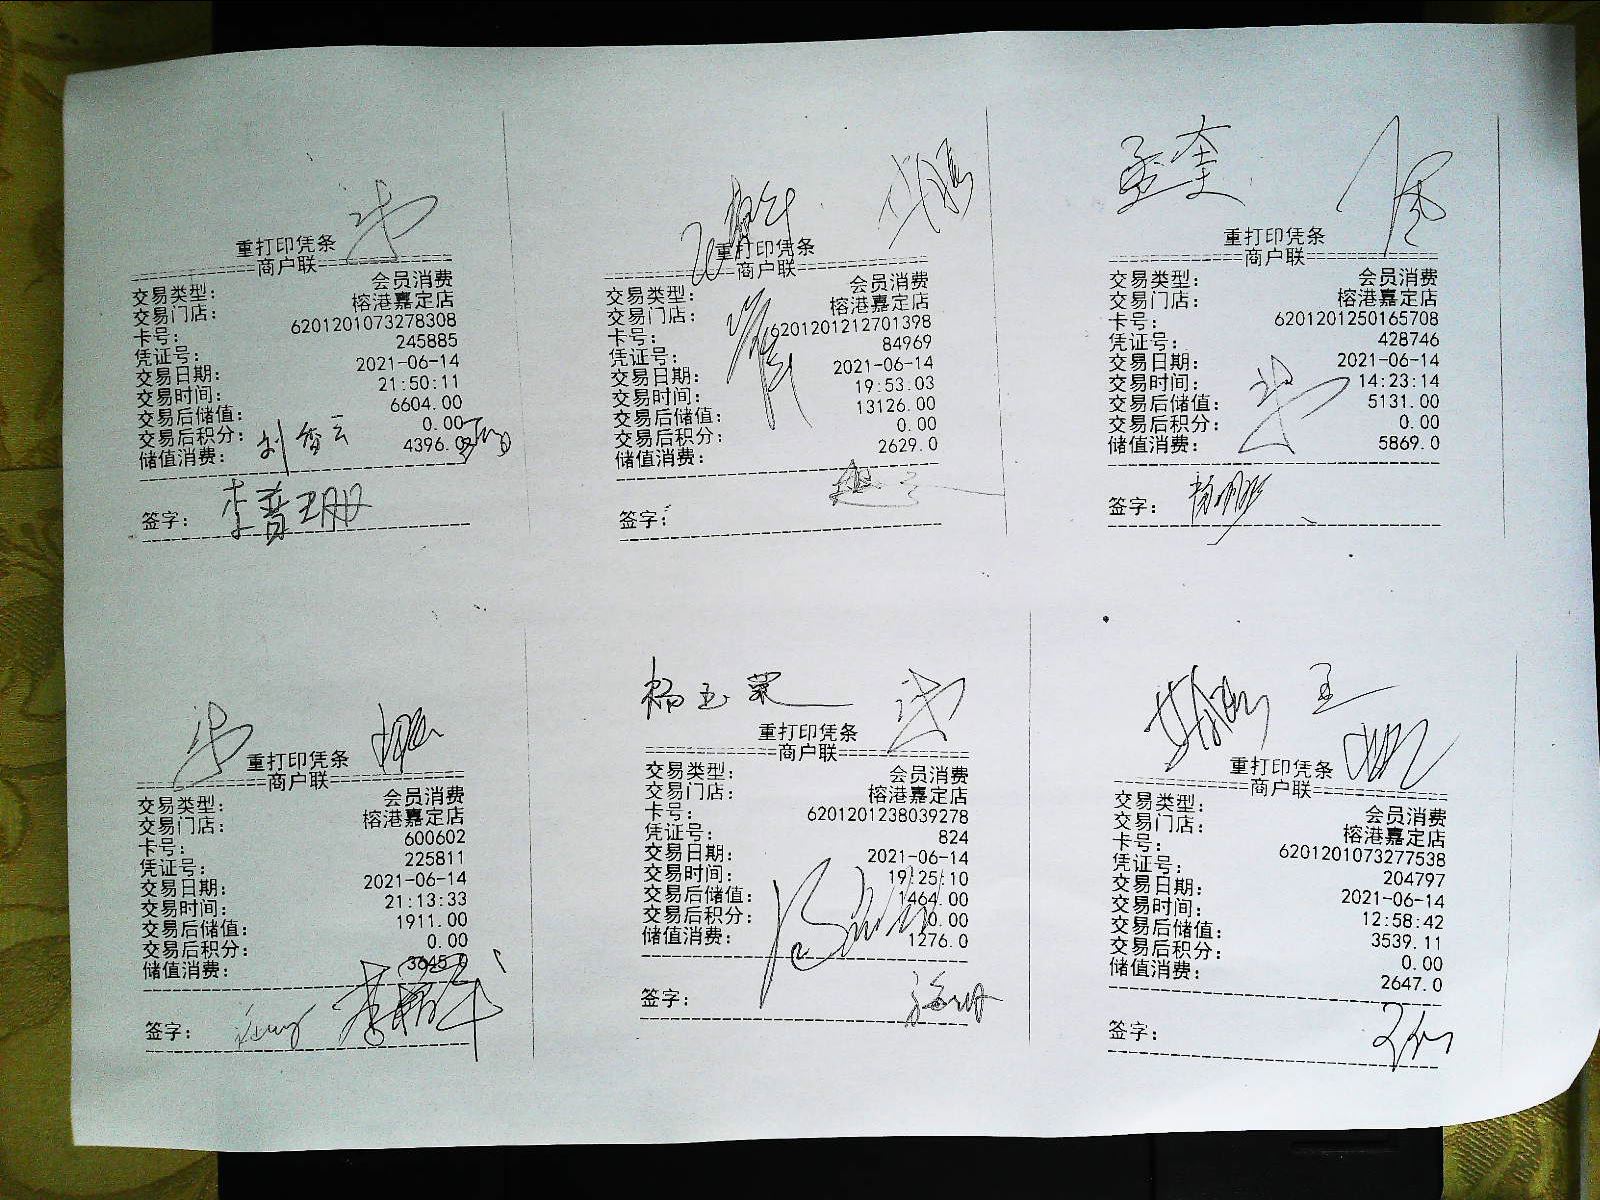 重打印凭条
======商户联======
交易类型： 会员消费
交易门店： 榕港嘉定店
卡号： 6201201073278308
凭证号： 245885
交易日期： 2021-06-14
交易时间： 21:50:11
交易后储值： 6604.00
交易后积分： 0.00
储值消费： 4396.0
刘
签字：
重打印凭条
======商户联======
交易类型： 会员消费
交易门店： 榕港嘉定店
卡号： 6201201212701398
凭证号： 84969
交易日期： 2021-06-14
交易时间： 19:53:03
交易后储值： 13126.00
交易后积分： 0.00
储值消费： 2629.0
签字：
孟奎
重打印凭条
======商户联======
交易类型： 会员消费
交易门店： 榕港嘉定店
卡号： 6201201250165708
凭证号： 428746
交易日期： 2021-06-14
交易时间： 14:23:14
交易后储值： 5131.00
交易后积分： 0.00
储值消费： 5869.0
签字：
重打印凭条
======商户联======
交易类型： 会员消费
交易门店： 榕港嘉定店
卡号： 600602
凭证号： 225811
交易日期： 2021-06-14
交易时间： 21:13:33
交易后储值： 1911.00
交易后积分： 0.00
储值消费： 3645.0
签字：
杨玉荣
重打印凭条
======商户联======
交易类型： 会员消费
交易门店： 榕港嘉定店
卡号： 6201201238039278
凭证号： 824
交易日期： 2021-06-14
交易时间： 19:25:10
交易后储值： 1464.00
交易后积分： 0.00
储值消费： 1276.0
签字：
重打印凭条
======商户联======
交易类型： 会员消费
交易门店： 榕港嘉定店
卡号： 6201201073277538
凭证号： 204797
交易日期： 2021-06-14
交易时间： 12:58:42
交易后储值： 3539.11
交易后积分： 0.00
储值消费： 2647.0
签字：